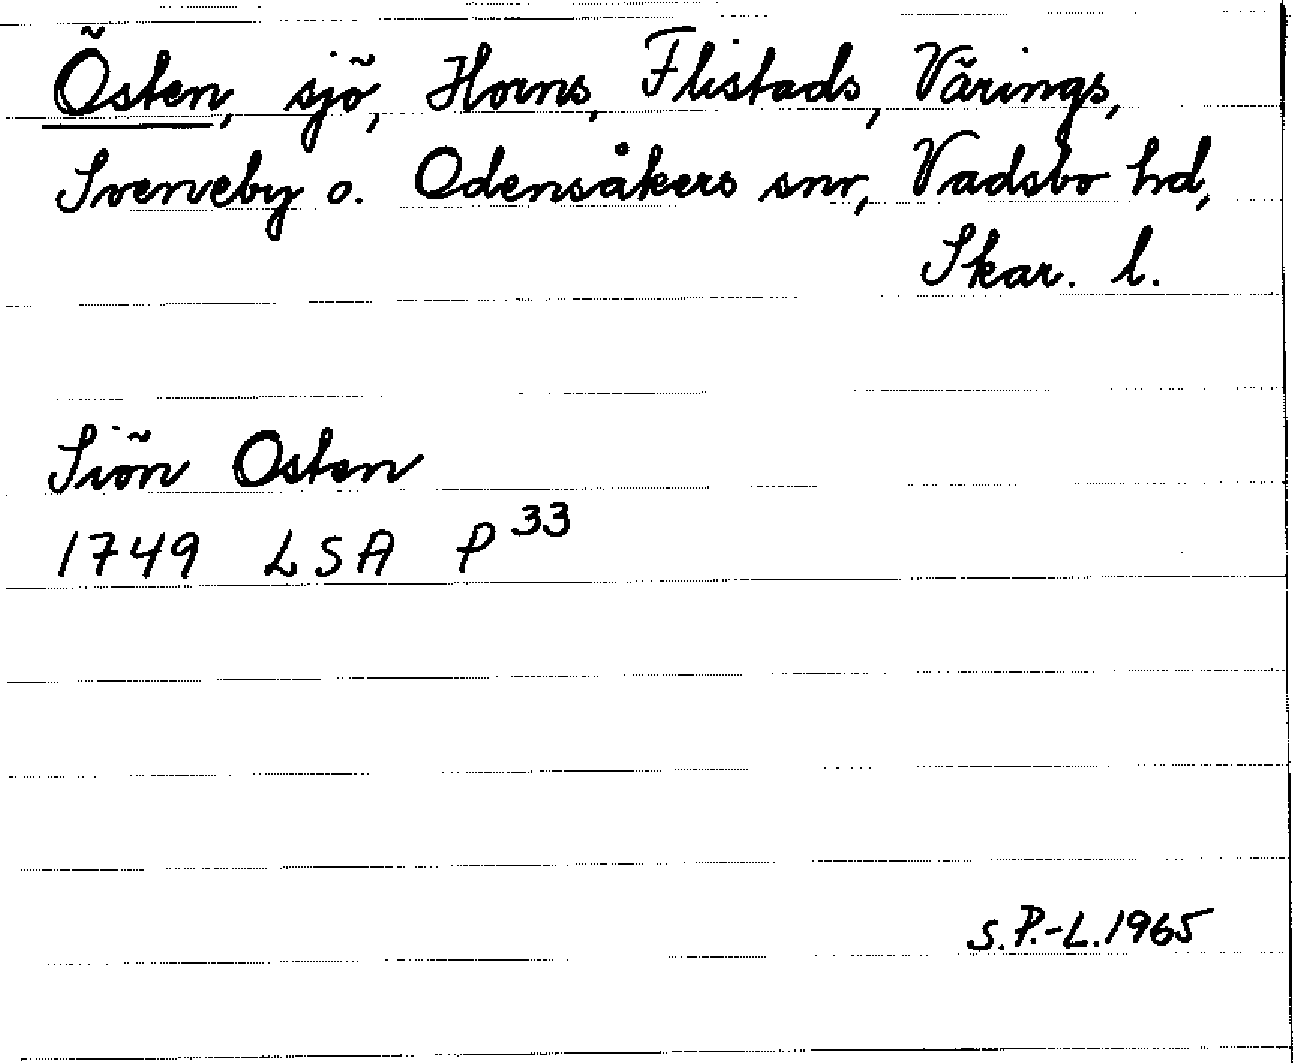 Östen, sjö, Horns, Flistads, Värings,
Sveneby o. Odensåkers snr, Vadsbo hd,
Skar. l.
Siön Osten
1749 LSA P 33
S.P.-L.1965